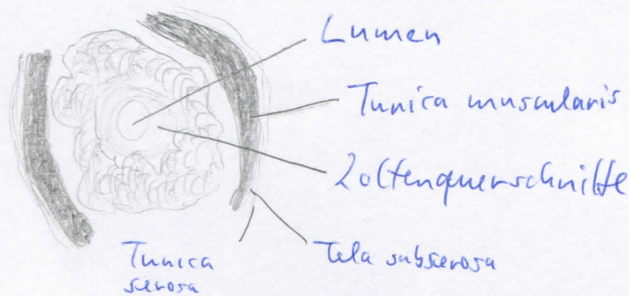 Lumen
Tunica muscularis
Zottenquerschnitte
Tela subserosa
Tunica
serosa